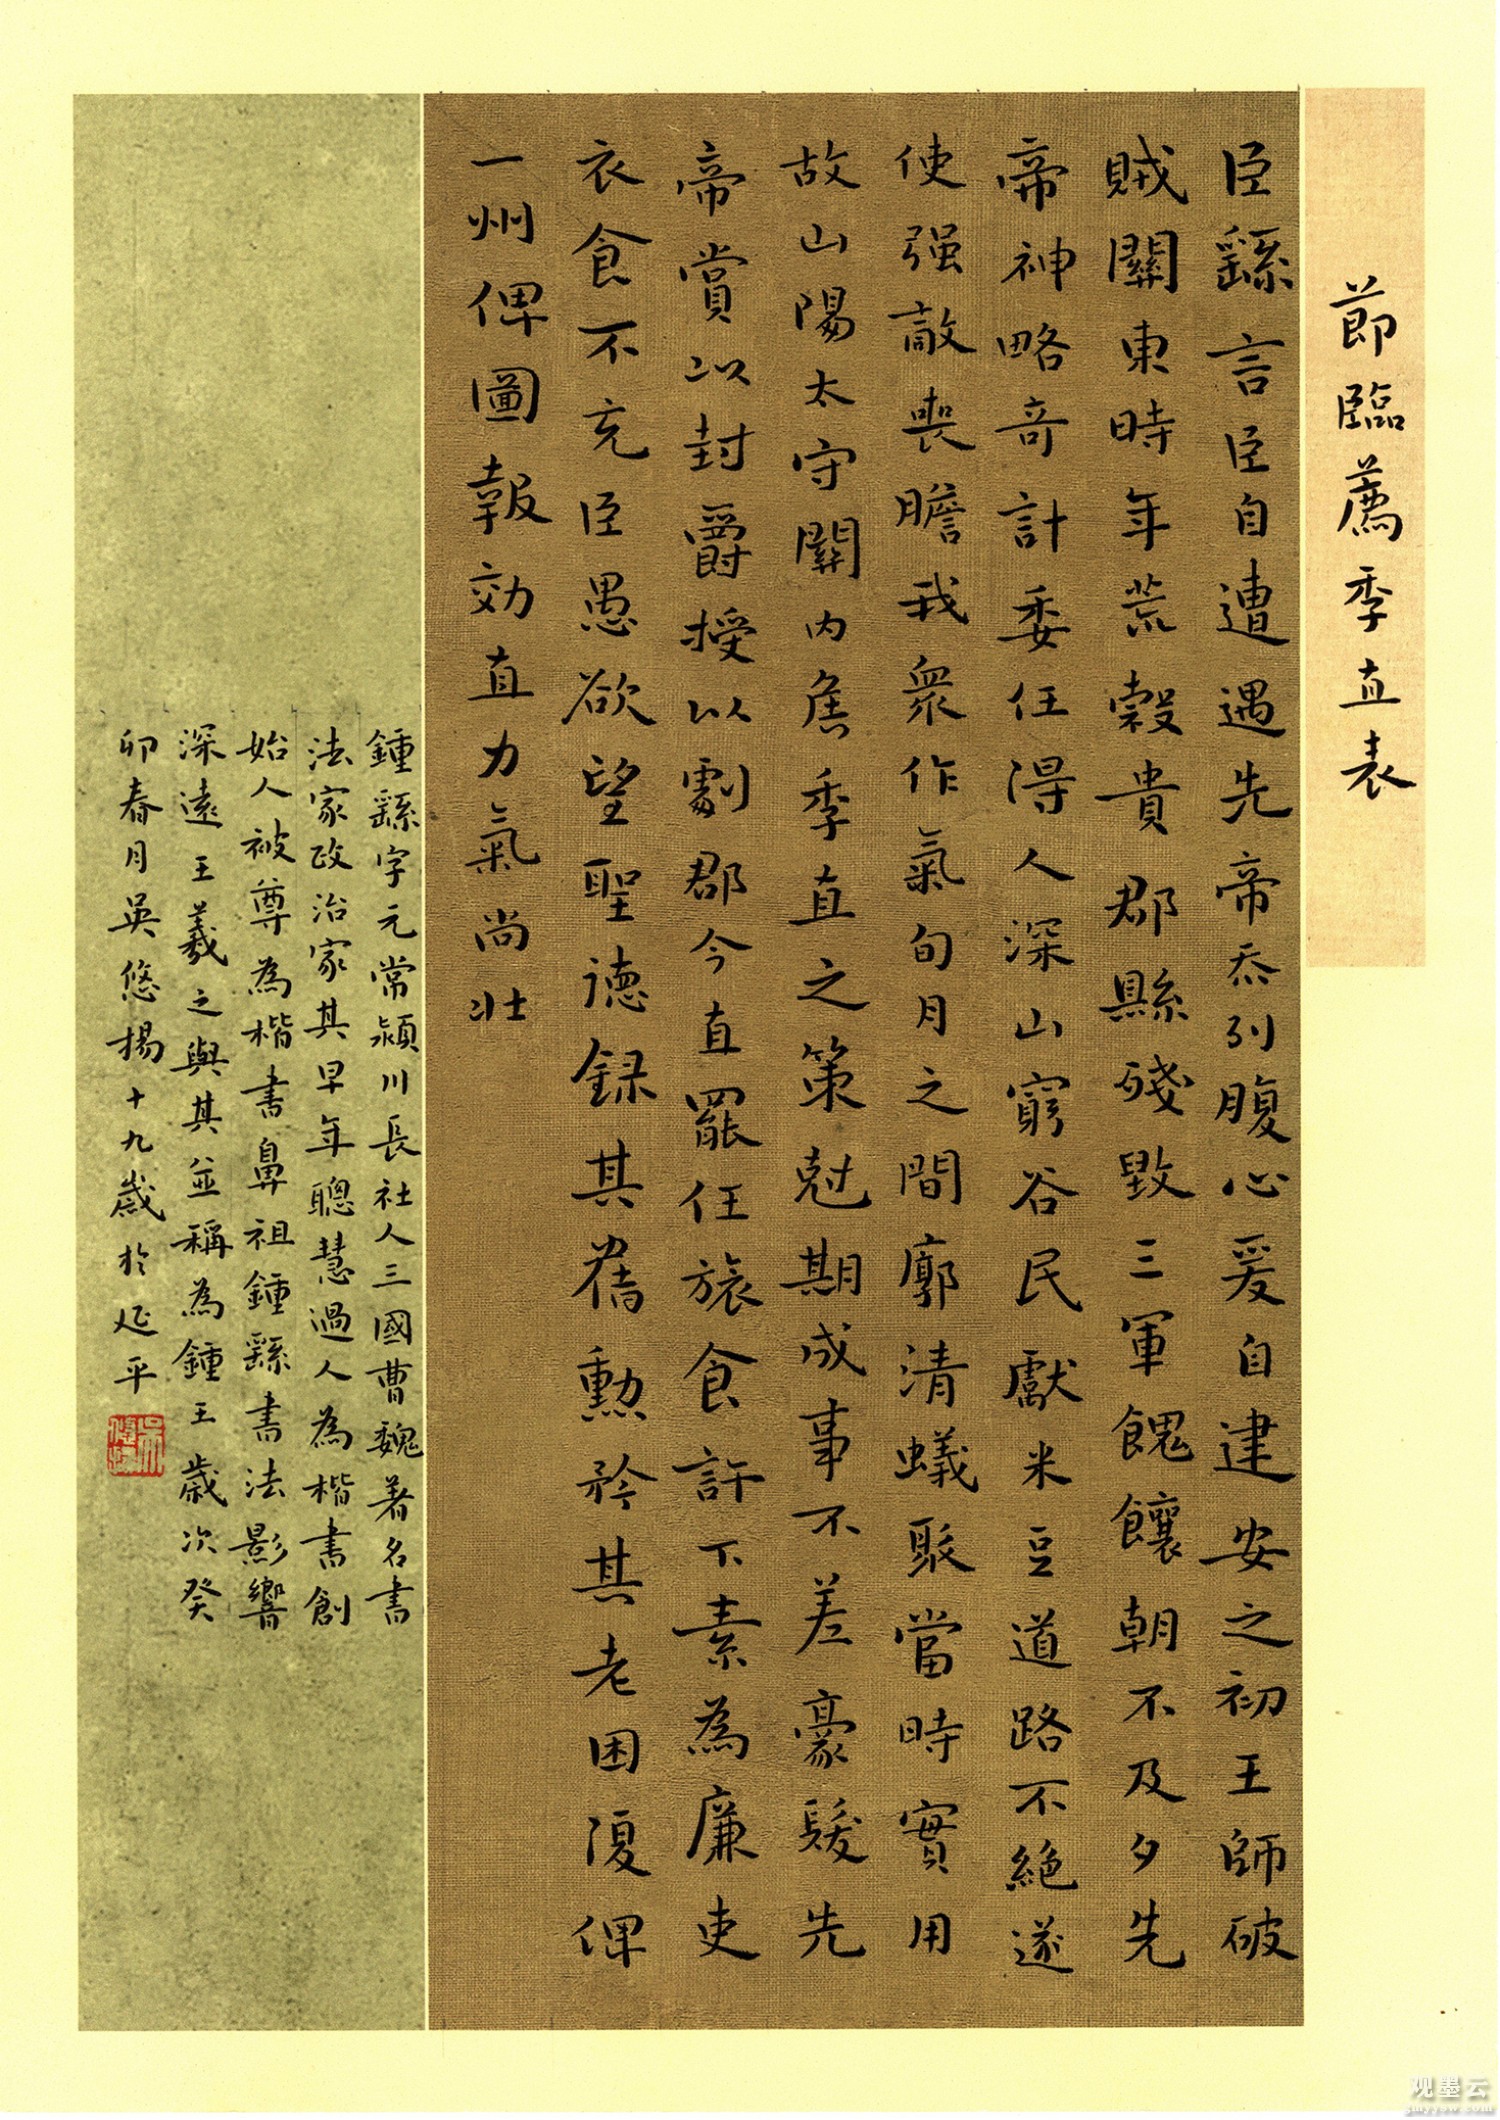 節臨薦季直表
臣繇言臣自遭遇先帝忝列腹心爰自建安之初王師破
賊關東時年荒穀貴郡縣殘毀三軍餽饟朝不及夕先
帝神略奇計委任得人深山窮谷民獻米豆道路不絕遂
使强敵喪膽我衆作氣旬月之間廓清蟻聚當時實用
故山陽太守關內侯季直之策尅期成事不差豪髮先
帝賞以封爵授以劇郡今直罷任旅食許下素為廉吏
衣食不充臣愚欲望聖德録其舊勳矜其老困復俾
一州俾圖報効直力氣尚壯
鍾繇字元常潁川長社人三國曹魏著名書
法家政治家其早年聰慧過人為楷書創
始人被尊為楷書鼻祖鍾繇書法影響
深遠王羲之與其並稱為鍾王歲次癸
卯春月吳悠揚十九歲於延平
观墨云
gmyyow.com